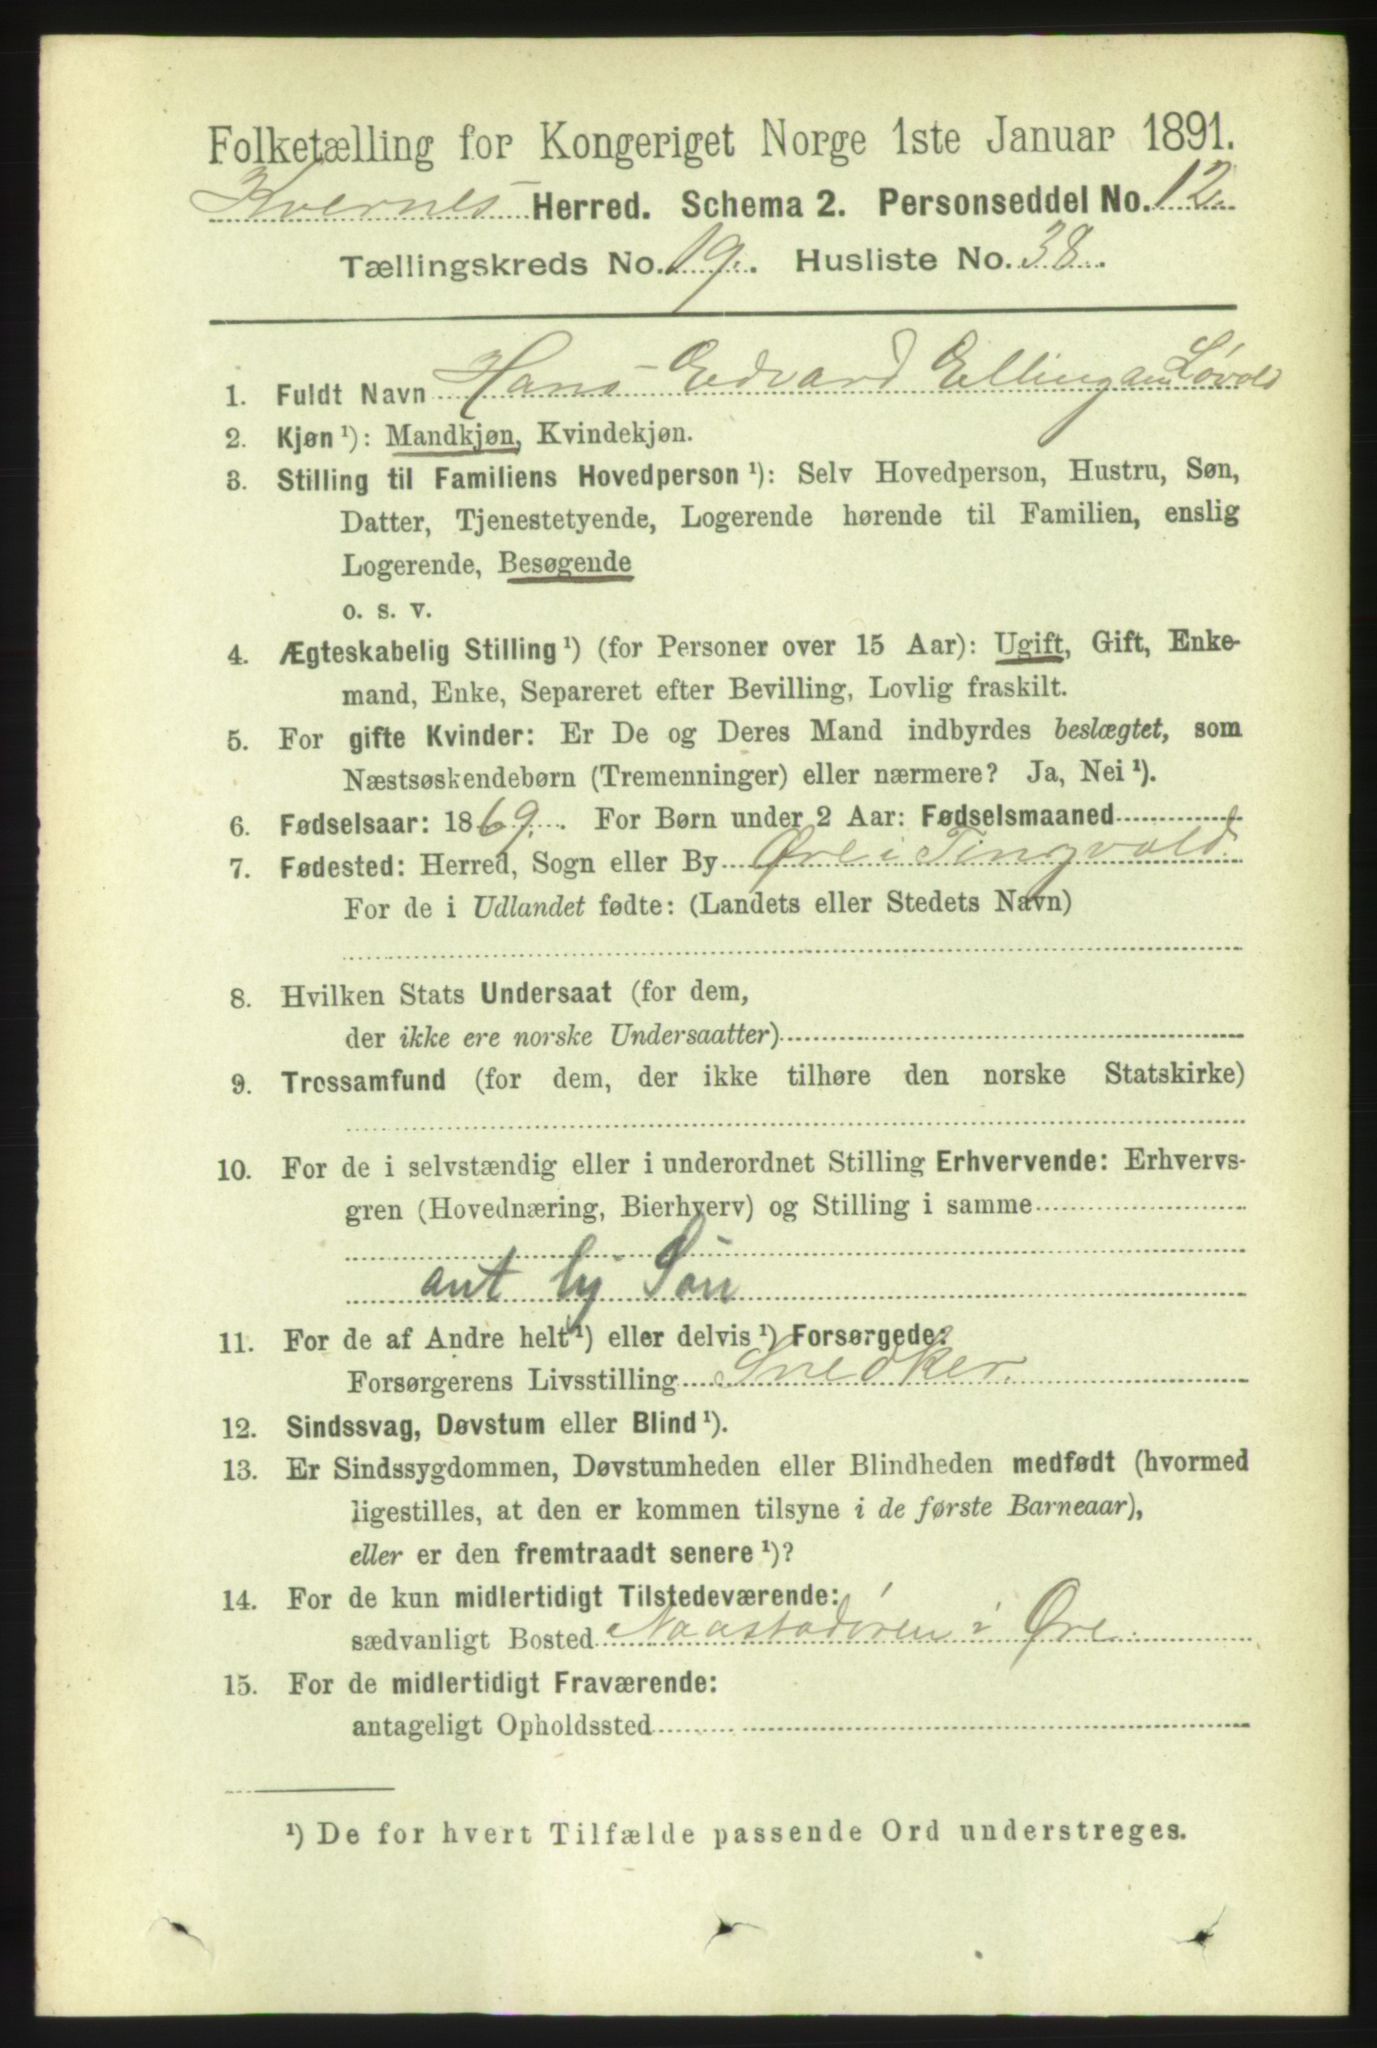 Folketælling for Kongeriget Norge 1ste Januar 1891.
Kvernes Herred. Schema 2. Personseddel No. 12.
Tællingskreds No. 19. Husliste No. 38.
1. Fuldt Navn Hans Edvard Ellingsen Løvold
2. Kjøn ¹): Mandkjøn, Kvindekjøn.
3. Stilling til Familiens Hovedperson ¹): Selv Hovedperson, Hustru, Søn,
Datter, Tjenestetyende, Logerende hørende til Familien, enslig
Logerende, Besøgende
o. s. v.
4. Ægteskabelig Stilling ¹) (for Personer over 15 Aar): Ugift, Gift, Enke-
mand, Enke, Separeret efter Bevilling, Lovlig fraskilt.
5. For gifte Kvinder: Er De og Deres Mand indbyrdes beslægtet, som
Næstsøskendebørn (Tremenninger) eller nærmere? Ja, Nei ¹).
6. Fødselsaar: 1869. For Børn under 2 Aar: Fødselsmaaned
7. Fødested: Herred, Sogn eller By Øre i Tingvold
For de i Udlandet fødte: (Landets eller Stedets Navn)
8. Hvilken Stats Undersaat (for dem,
der ikke ere norske Undersaatter)
9. Trossamfund (for dem, der ikke tilhøre den norske Statskirke)
10. For de i selvstændig eller i underordnet Stilling Erhvervende: Erhvervs-
gren (Hovednæring, Bierhverv) og Stilling i samme
ant hj Søn
11. For de af Andre helt ¹) eller delvis ¹) Forsørgede:
Forsørgerens Livsstilling Snedker.
12. Sindssvag, Døvstum eller Blind ¹).
13. Er Sindssygdommen, Døvstumheden eller Blindheden medfødt (hvormed
ligestilles, at den er kommen tilsyne i de første Barneaar),
eller er den fremtraadt senere ¹)?
14. For de kun midlertidigt Tilstedeværende:
sædvanligt Bosted i Øre
15. For de midlertidigt Fraværende:
antageligt Opholdssted
¹) De for hvert Tilfælde passende Ord understreges.